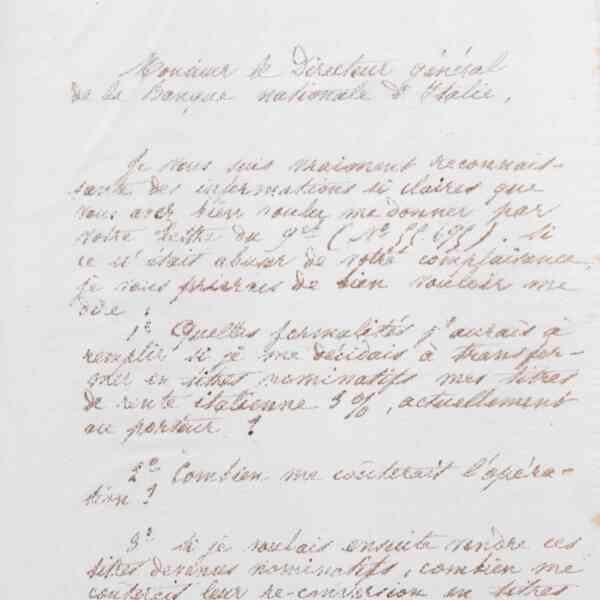 Monsieur le Directeur général
de la Banque nationale d'Italie,
Je vous suis vraiment reconnais-
sante des informations si claires que
vous avez bien voulu me donner par
votre lettre du (No ). Si
ce n'était abuser de votre complaisance,
je vous prierais de bien vouloir me
dire :
1o Quelles formalités j'aurais à
remplir si je me décidais à transfor-
mer en titres nominatifs mes titres
de rente italienne 5 %, actuellement
au porteur ?
2o Combien me coûterait l'opéra-
tion ?
3o Si je voulais ensuite vendre ces
titres devenus nominatifs, combien me
coûterait leur re-conversion en titres